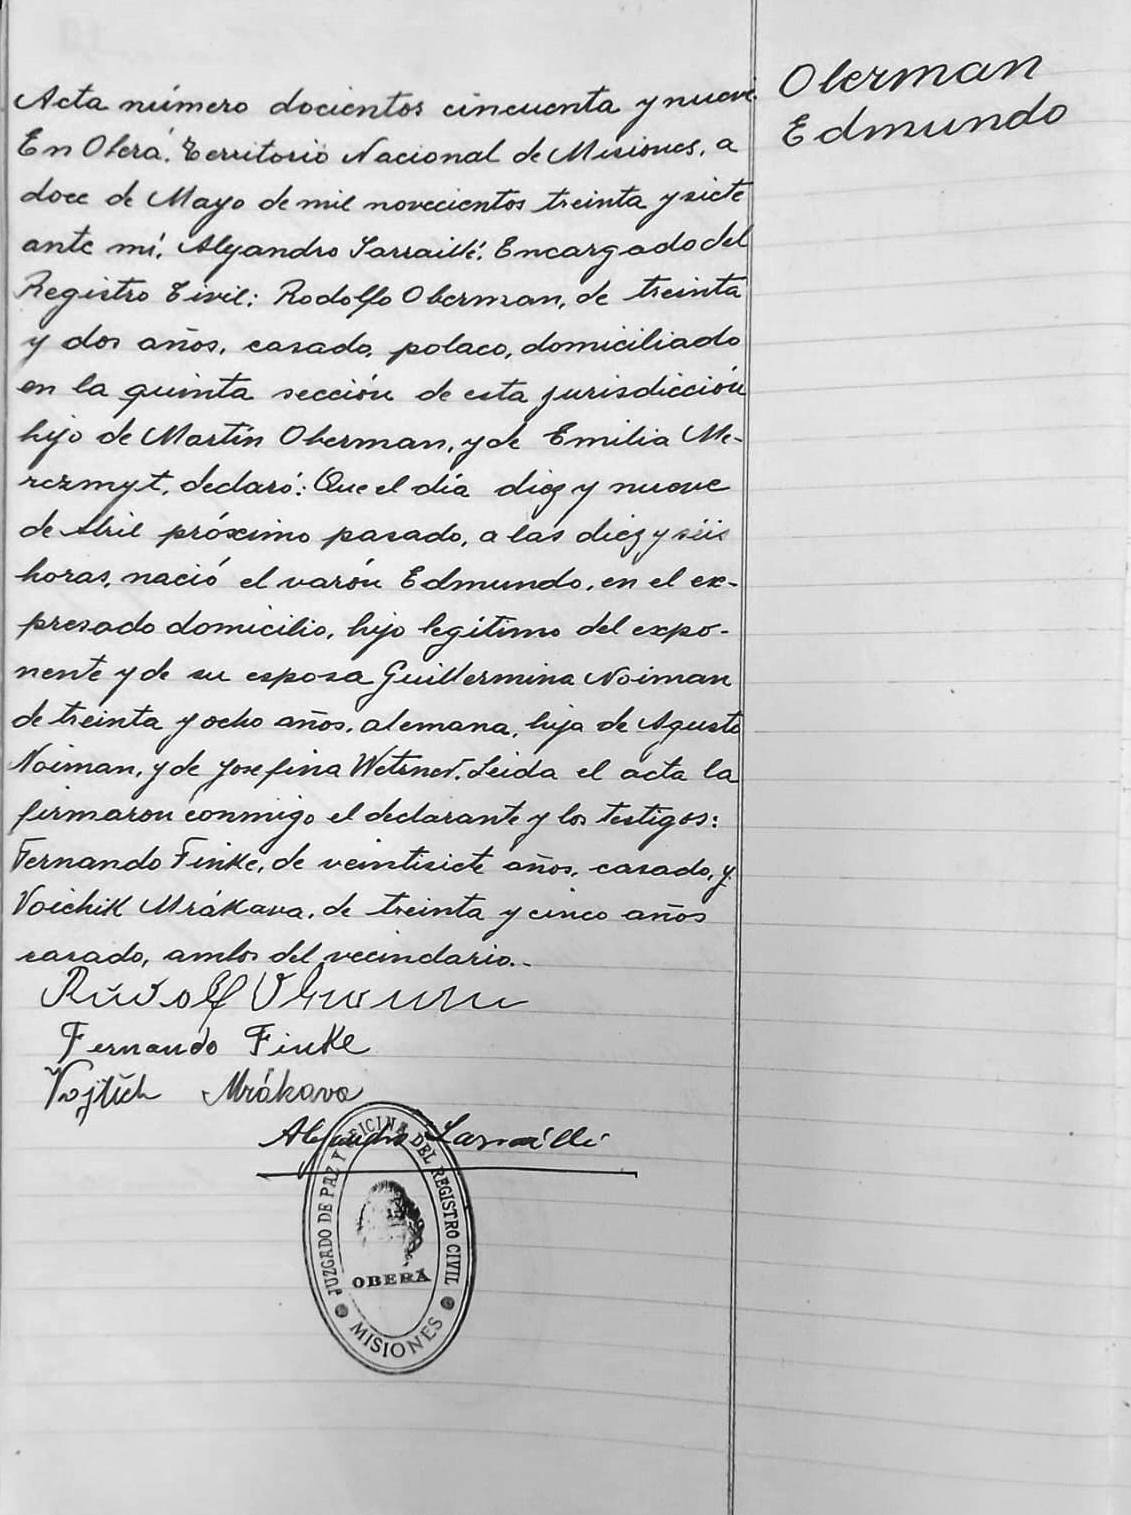 Oberman
Edmundo
Acta número docientos cincuenta y nueve
En Oberá, Territorio Nacional de Misiones, a
doce de Mayo de mil novecientos treinta y siete
ante mí, Alejandro Sarraillé, Encargado del
Registro Civil: Rodolfo Oberman, de treinta
y dos años, casado, polaco, domiciliado
en la quinta sección de esta jurisdicción
hijo de Martín Oberman, y de Emilia Me-
rezmyt, declaró: Que el día diez y nueve
de Abril próximo pasado, a las diez y séis
horas, nació el varón Edmundo, en el ex-
presado domicilio, hijo legítimo del expo-
nente y de su esposa Guillermina Noiman
de treinta y ocho años, alemana, hija de Agusto
Noiman, y de Josefina Wetzner. Leida el acta la
firmaron conmigo el declarante y los testigos:
Fernando Finke, de veintisiete años, casado, y
Voichik Mrákava, de treinta y cinco años
casado, ambos del vecindario.-
Rudolf
Fernando Finke
Vojtĕch Mrákava
Alejandro Sarraillé
JUZGADO DE PAZ Y OFICINA DEL REGISTRO CIVIL
OBERÁ
MISIONES